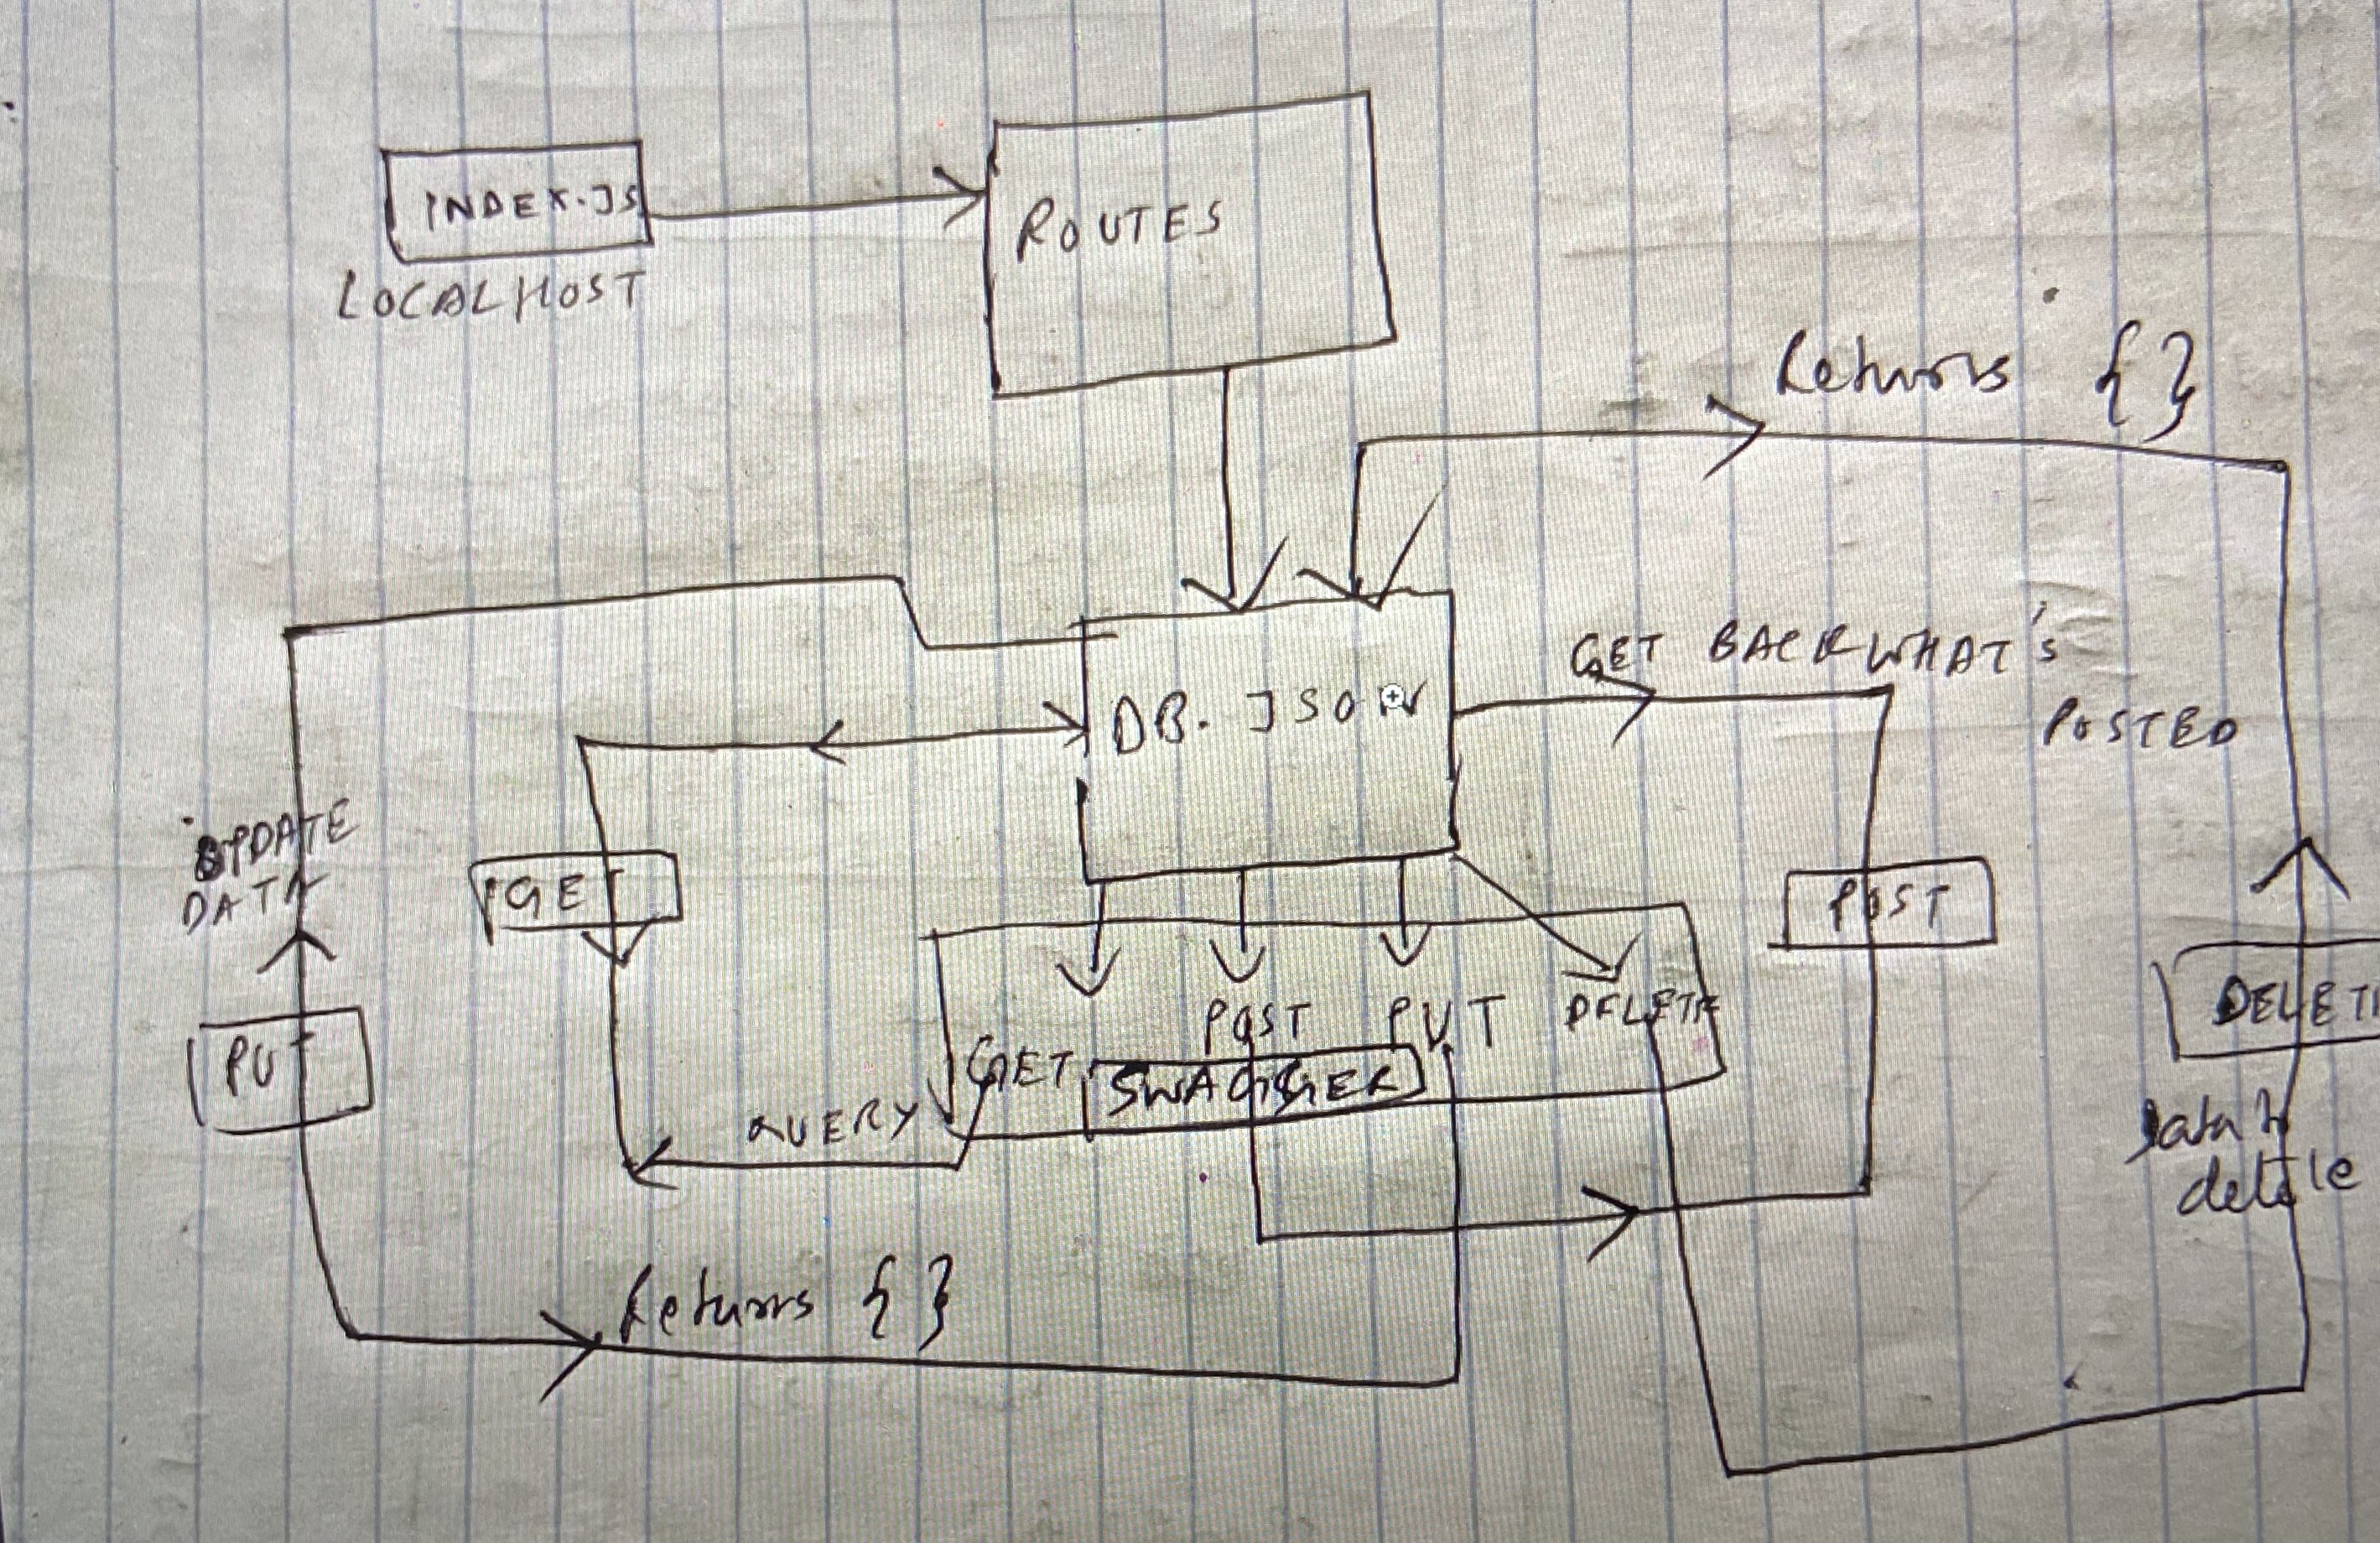 INDEX.JS
LOCALHOST
ROUTES
Returns { }
GET BACK WHAT'S
POSTED
DB. JSON
UPDATE
DATA
GET
POST
PUT
DELETE
GET
POST
PUT
DELETE
SWAGGER
QUERY
Data to
delete
Returns { }